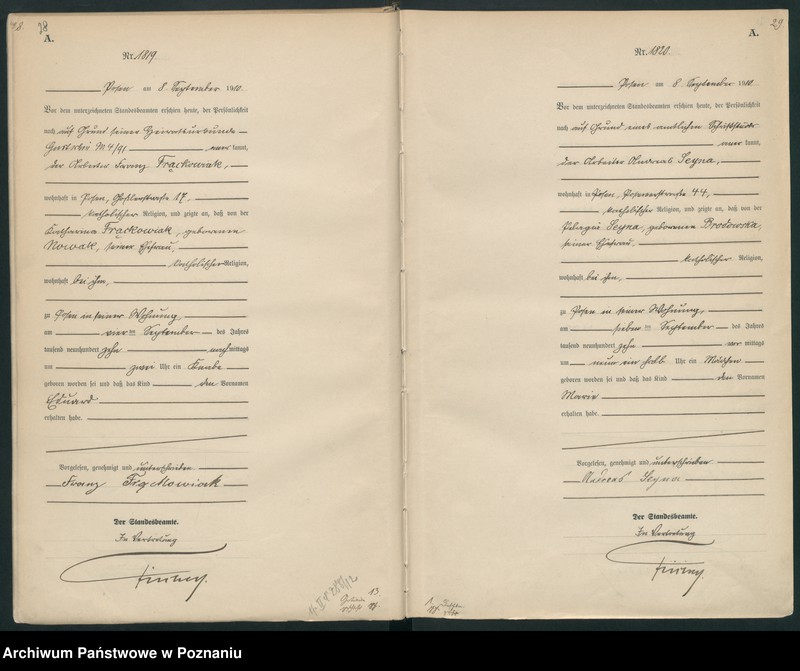 28
A.
Nr. 1819.
Posen am 8. September 1910
Vor dem unterzeichneten Standesbeamten erschien heute, der Persönlichkeit
nach auf Grund seiner Heiratsurkunde
kannt,
der Arbeiter Franz Frąckowiak,
wohnhaft in Posen, 17,
katholischer Religion, und zeigte an, daß von der
Katharina Frąckowiak, geborenen
Nowak, seiner Ehefrau,
katholischer Religion,
wohnhaft bei ihm,
zu Posen in seiner Wohnung,
am vierten September des Jahres
tausend neunhundert zehn nachmittags
um zwei Uhr ein Knabe
geboren worden sei und daß das Kind den Vornamen
Eduard
erhalten habe.
Vorgelesen, genehmigt und unterschrieben
Franz
Der Standesbeamte.
In Vertretung
29
A.
Nr. 1820.
Posen am 8. September 1910
Vor dem unterzeichneten Standesbeamten erschien heute, der Persönlichkeit
nach auf Grund eines amtlichen Schriftstücks
kannt,
der Arbeiter Andreas Seyna,
wohnhaft in Posen, 44,
katholischer Religion, und zeigte an, daß von der
Pelagia Seyna, geborenen Brodowska,
seiner Ehefrau,
katholischer Religion,
wohnhaft bei ihm,
zu Posen in seiner Wohnung,
am sieben ten September des Jahres
tausend neunhundert zehn vor mittags
um neun ein halb Uhr ein Mädchen
geboren worden sei und daß das Kind den Vornamen
Maria
erhalten habe.
Vorgelesen, genehmigt und unterschrieben
Andreas Seyna
Der Standesbeamte.
In Vertretung
Archiwum Państwowe w Poznaniu